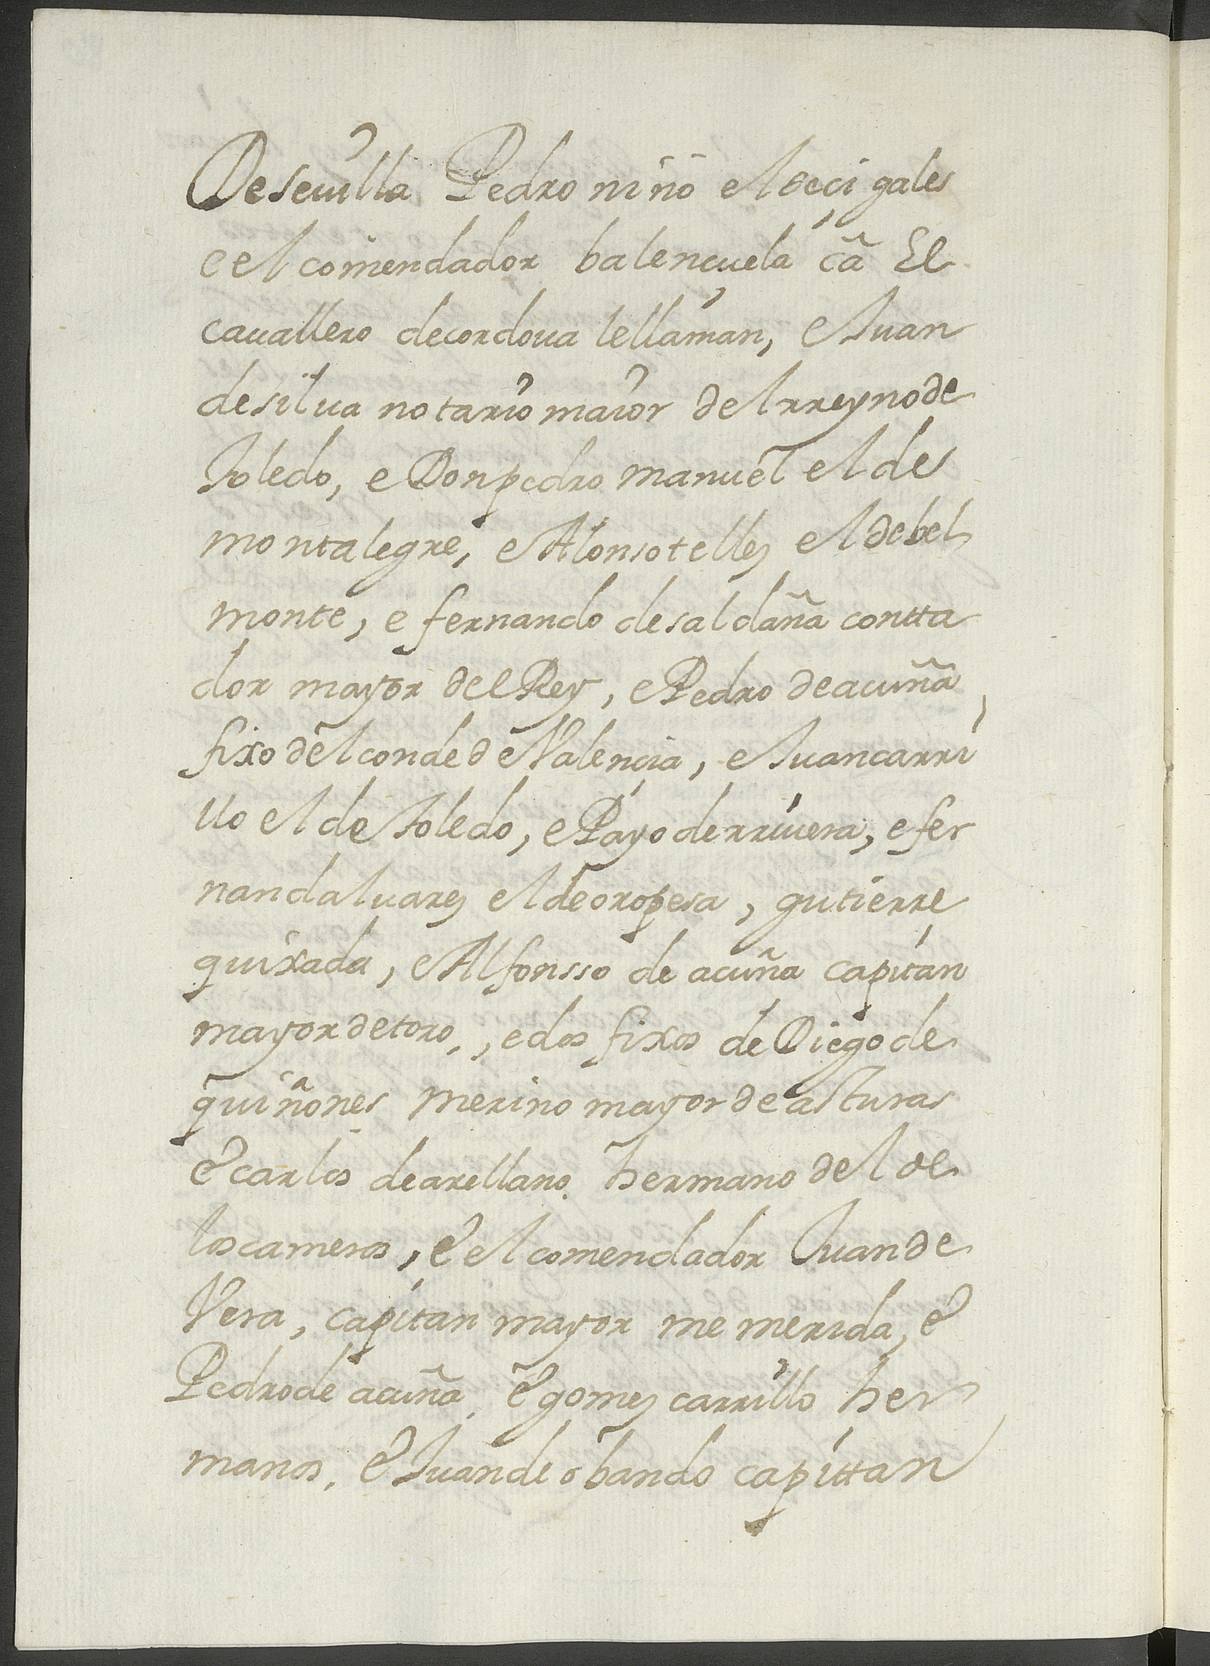 De seuilla Pedro niño el de ci gales
e el comendador balençuela ca El
cauallero de cordoua le llaman, e Juan
de silua notario maior del rreyno de
Toledo, e Don pedro manuel el de
montalegre, e Alonso telles el de bel
monte, e fernando de saldaña contta
dor mayor del Rey, e Pedro de acuña,
fixo del conde de Valençia, e Juan carri
llo el de Toledo, e Payo de rriuera, e fer
nand aluares el de oropesa, gutierre
quixada, e Alfonsso de acuña capitan
mayor de toro, e dos fixos de Diego de
quiñones merino mayor de asturas
e carlos de arellano hermano del de
los cameros, e el comendador Juan de
Vera, capitan mayor me merida, e
Pedro de acuña e gomes carrillo her
manos, e Juan de obando capittan